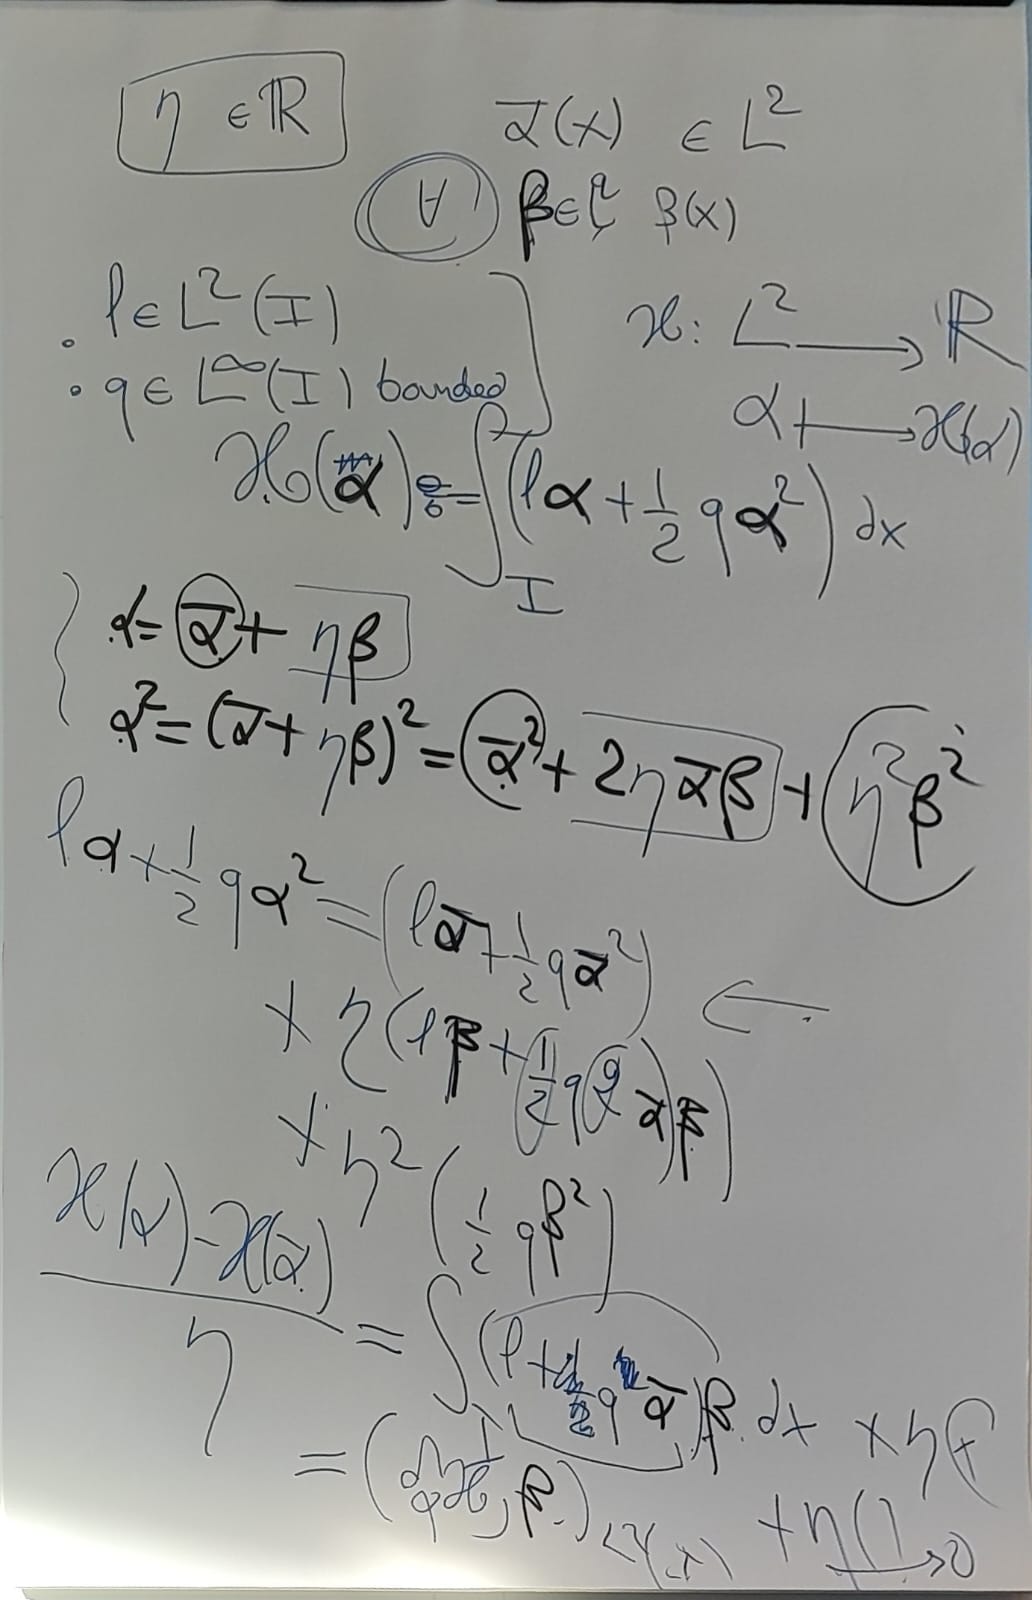 η ∈ ℝ
ᾱ(x) ∈ L²
∀ β ∈ L² β(x)
• ℓ ∈ L²(I)
• q ∈ L^∞(I) bounded
ℋ: L² ⟶ ℝ
α ⟼ ℋ(α)
ℋ(α) = ∫_I (ℓα + 1/2 qα²) dx
α = ᾱ + ηβ
α² = (ᾱ + ηβ)² = ᾱ² + 2ηᾱβ + η²β²
ℓα + 1/2 qα² = (ℓᾱ + 1/2 qᾱ²) ←
+ η(ℓβ + 1/2 q 2 ᾱβ)
+ η² (1/2 qβ²)
(ℋ(α) - ℋ(ᾱ))/η = ∫(ℓ + qᾱ)β dx + η(
= ( , β)_{L²(I)} + η( ) → 0